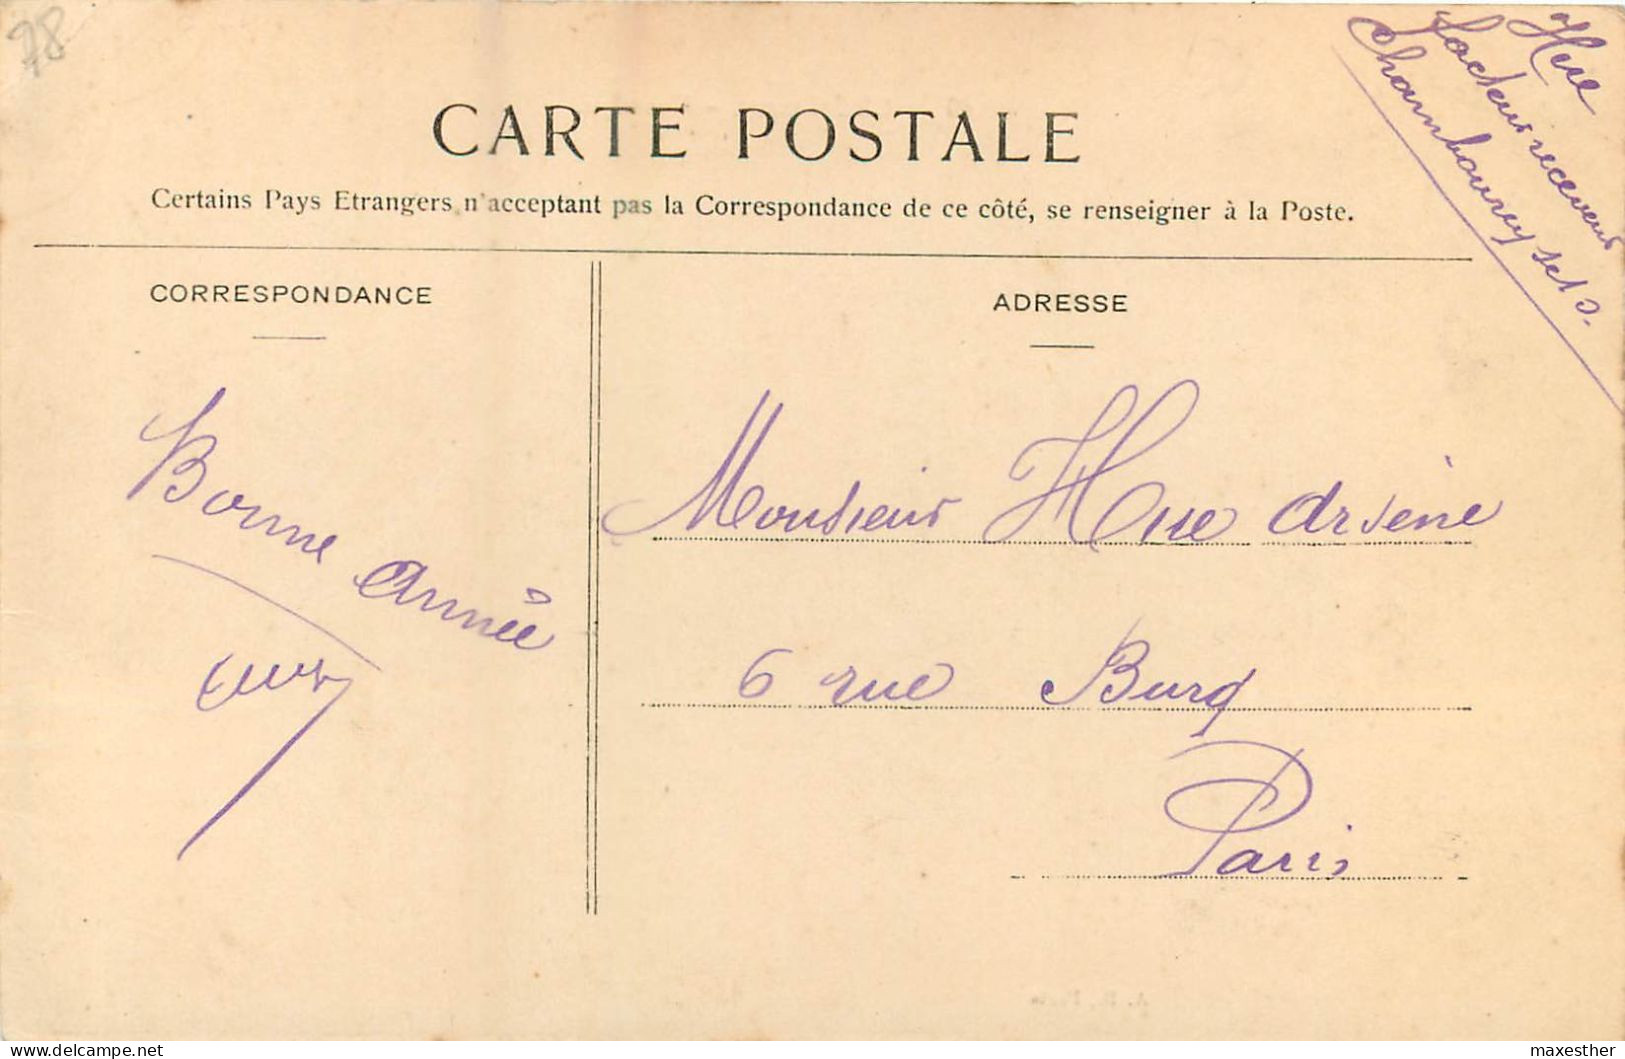 78
Hue
facteur receveur
Chambourcy S et O.
CARTE POSTALE
Certains Pays Etrangers n'acceptant pas la Correspondance de ce côté, se renseigner à la Poste.
CORRESPONDANCE
ADRESSE
Bonne année
Monsieur Hue Arsène
6 rue Burq
Paris
www.delcampe.net
maxesther